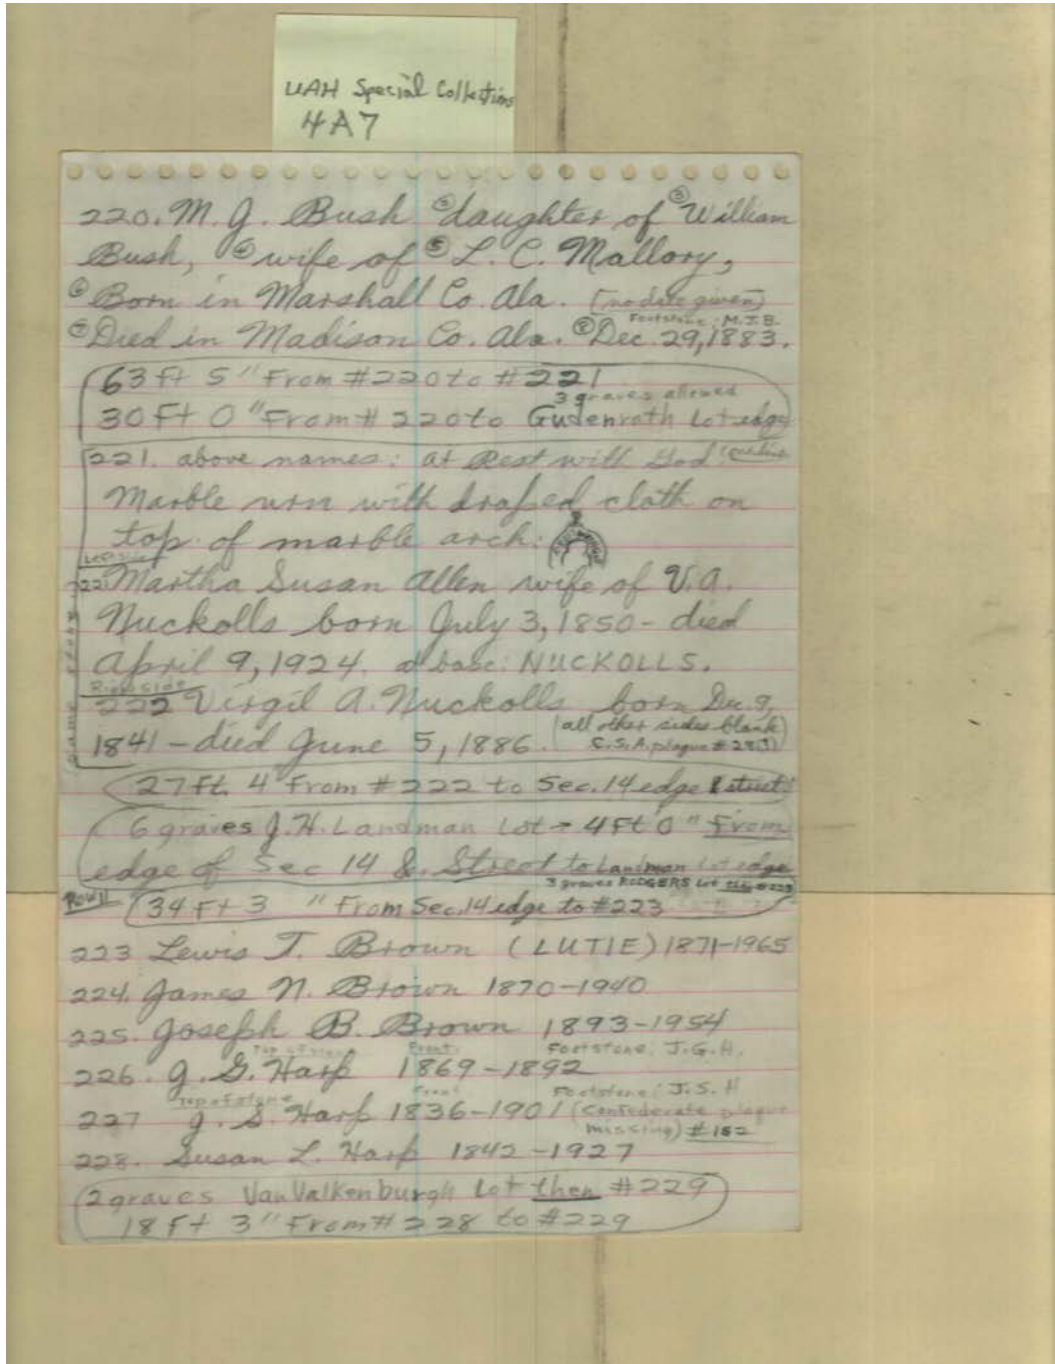 UAH Special Collections
4A7
220. M. J. Bush ② daughter of ③ William
Bush, ④ wife of ⑤ L. C. Mallory,
⑥ Born in Marshall Co. Ala. (no date given)
Footstone: M.J.B.
⑦ Died in Madison Co. Ala. ⑧ Dec. 29, 1883.
63 ft 5" From #220 to #221
3 graves allowed
30 Ft 0" From # 220 to Gudenrath Lot edge
221. above names: at Rest with God
Marble urn with draped cloth on
top of marble arch:
Left side
221 Martha Susan Allen wife of V.A.
Nuckolls born July 3, 1850 - died
April 9, 1924. at base: NUCKOLLS.
Right Side
same stone
222 Virgil A. Nuckolls born Dec. 9,
1841 - died June 5, 1886. (all other sides blank)
C.S.A. plaque #
27 Ft. 4" From #222 to Sec. 14 edge & street
6 graves J.H. Landman Lot - 4 Ft 0" From
edge of Sec 14 & Street to Landman Lot edge
3 graves RODGERS Lot then #223
Row 11
34 Ft 3 " From Sec. 14 edge to #223
223 Lewis T. Brown (LUTIE) 1871-1965
224. James N. Brown 1870-1940
225. Joseph B. Brown 1893-1954
Top of stone Front: Footstone: J.G.H.
226. J. G. Harp 1869-1892
Top of stone Front Footstone: J.S.H
227 J. S. Harp 1836-1901 (Confederate plaque
missing) #182
228. Susan L. Harp 1842-1927
2 graves VanValkenburgh Lot then #229
18 Ft 3" From # 228 to #229